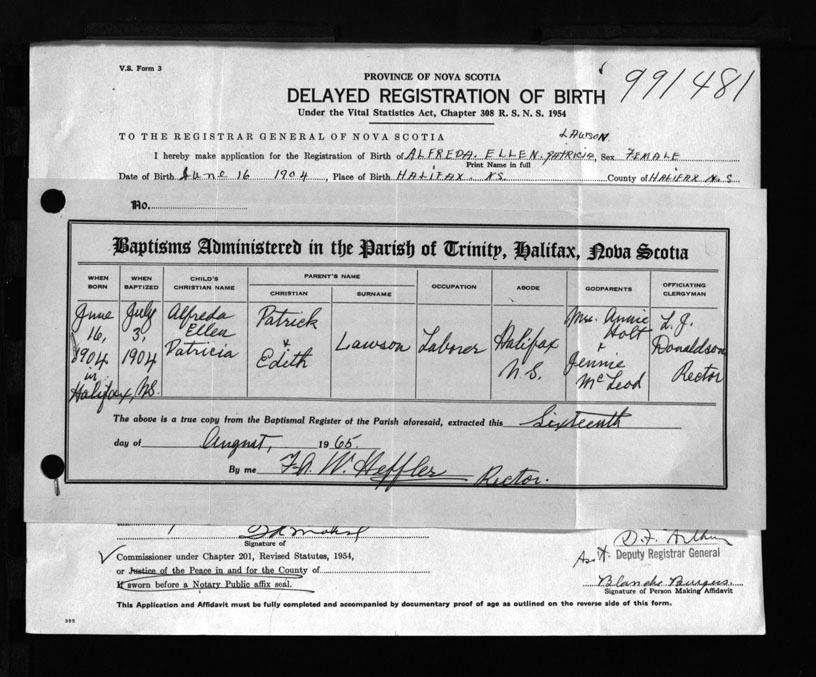 V.S. Form 3
991481
PROVINCE OF NOVA SCOTIA
DELAYED REGISTRATION OF BIRTH
Under the Vital Statistics Act, Chapter 308 R. S. N. S. 1954
TO THE REGISTRAR GENERAL OF NOVA SCOTIA
LAWSON
I hereby make application for the Registration of Birth of ALFREDA. ELLEN. PATRICIA, Sex FEMALE
Print Name in full
Date of Birth June 16 1904, Place of Birth HALIFAX. NS. County of HALIFAX N.S
No.
Baptisms Administered in the Parish of Trinity, Halifax, Nova Scotia
WHEN BORN WHEN BAPTIZED CHILD'S CHRISTIAN NAME PARENT'S NAME CHRISTIAN SURNAME OCCUPATION ABODE GODPARENTS OFFICIATING CLERGYMAN
June 16, 1904 in Halifax, N.S.
July 3, 1904
Alfreda Ellen Patricia
Patrick & Edith
Lawson
Laborer
Halifax N.S.
Mrs. Annie Holt & Jennie McLeod
L. J. Donaldson Rector
The above is a true copy from the Baptismal Register of the Parish aforesaid, extracted this Sixteenth
day of August, 1965.
By me W. Heffler Rector.
Signature of
Commissioner under Chapter 201, Revised Statutes, 1954,
or Justice of the Peace in and for the County of
If sworn before a Notary Public affix seal.
Asst. Deputy Registrar General
Blanche Burgess.
Signature of Person Making Affidavit
This Application and Affidavit must be fully completed and accompanied by documentary proof of age as outlined on the reverse side of this form.